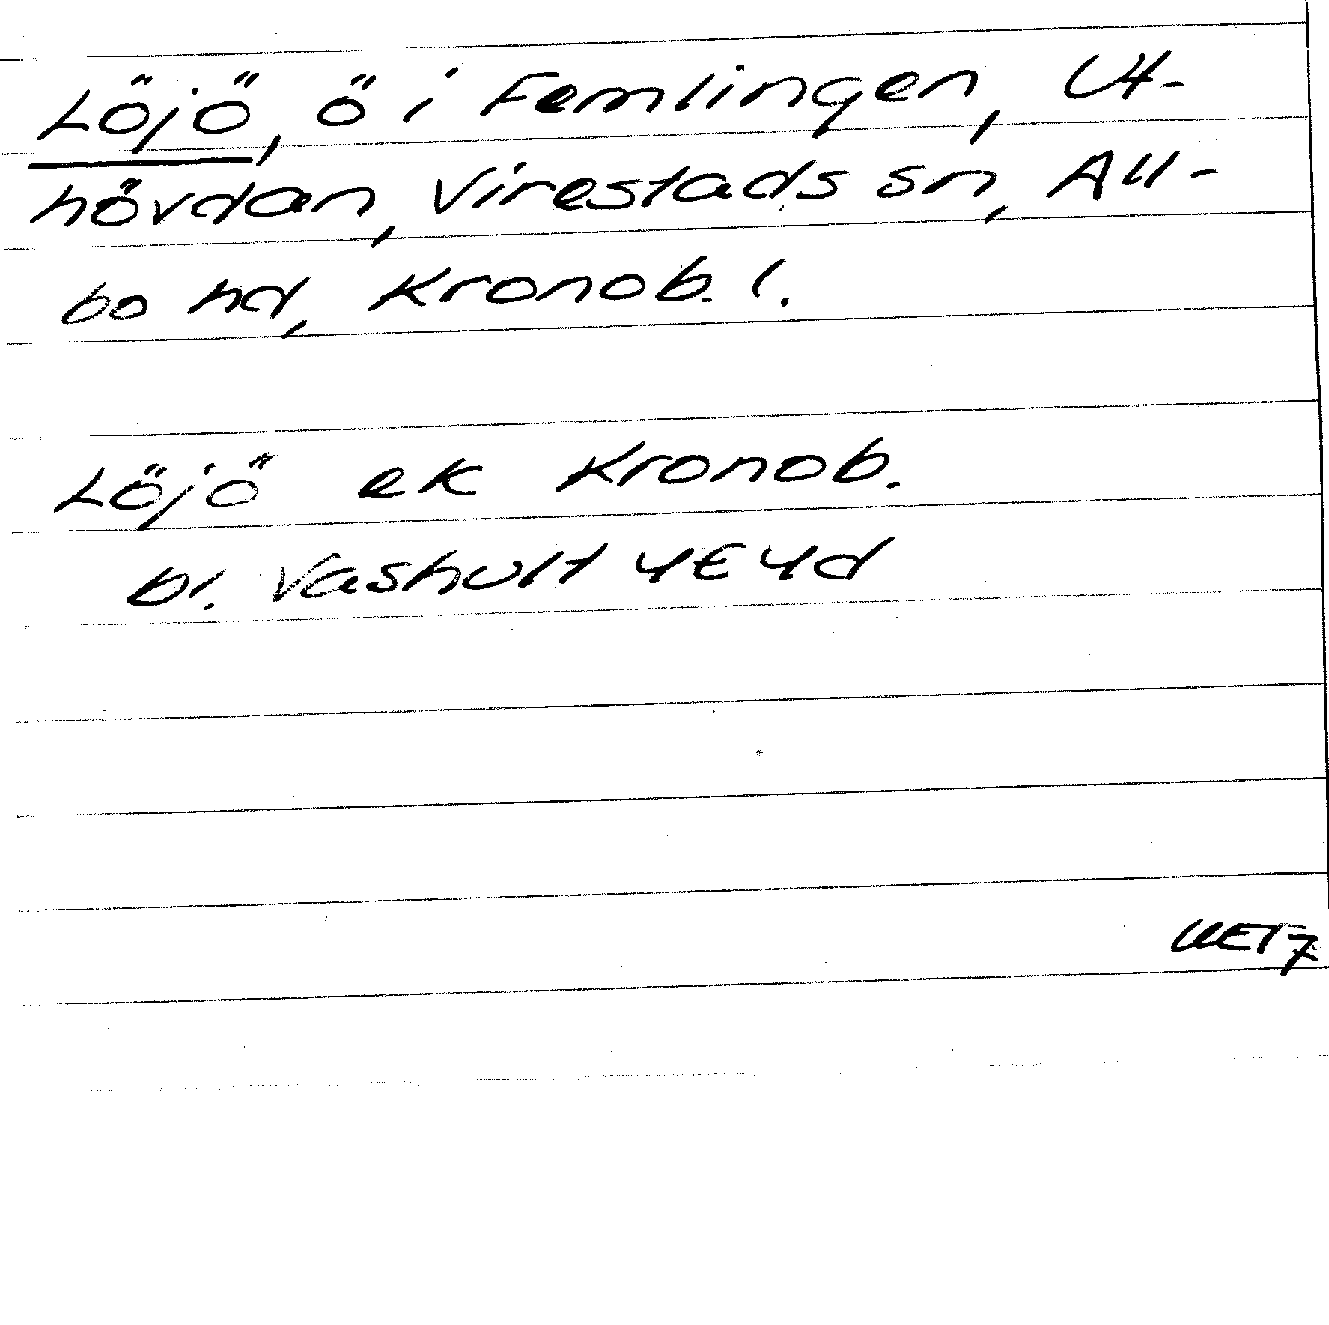 Löjö, ö i Femlingen, Ut-
hövdan, Virestads sn, All-
bo hd, Kronob. l.
Löjö ek Kronob.
bl. Vashult 4E4d